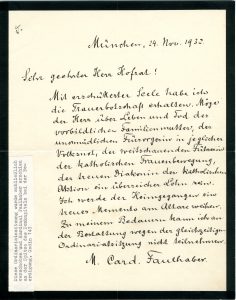 München, 24. Nov. 1932
Sehr geehrter Herr Hofrat!
Mit erschütterter Seele habe ich
die Trauerbotschaft erhalten. Möge
der Herr über Leben und Tod der
vorbildlichen Familienmutter, der
unermüdlichen Fürsorgerin in jeglicher
Volksnot, der weitschauenden Führerin
der katholischen Frauenbewegung,
der treuen Diakonin der Katholischen
Aktion ein überreicher Lohn sein.
Ich werde der Heimgegangenen ein
treues Memento am Altare weihen.
Zu meinem Bedauern kann ich an
der Bestattung wegen der gleichzeitigen
Ordinariatssitzung nicht teilnehmen.
M. Card. Faulhaber